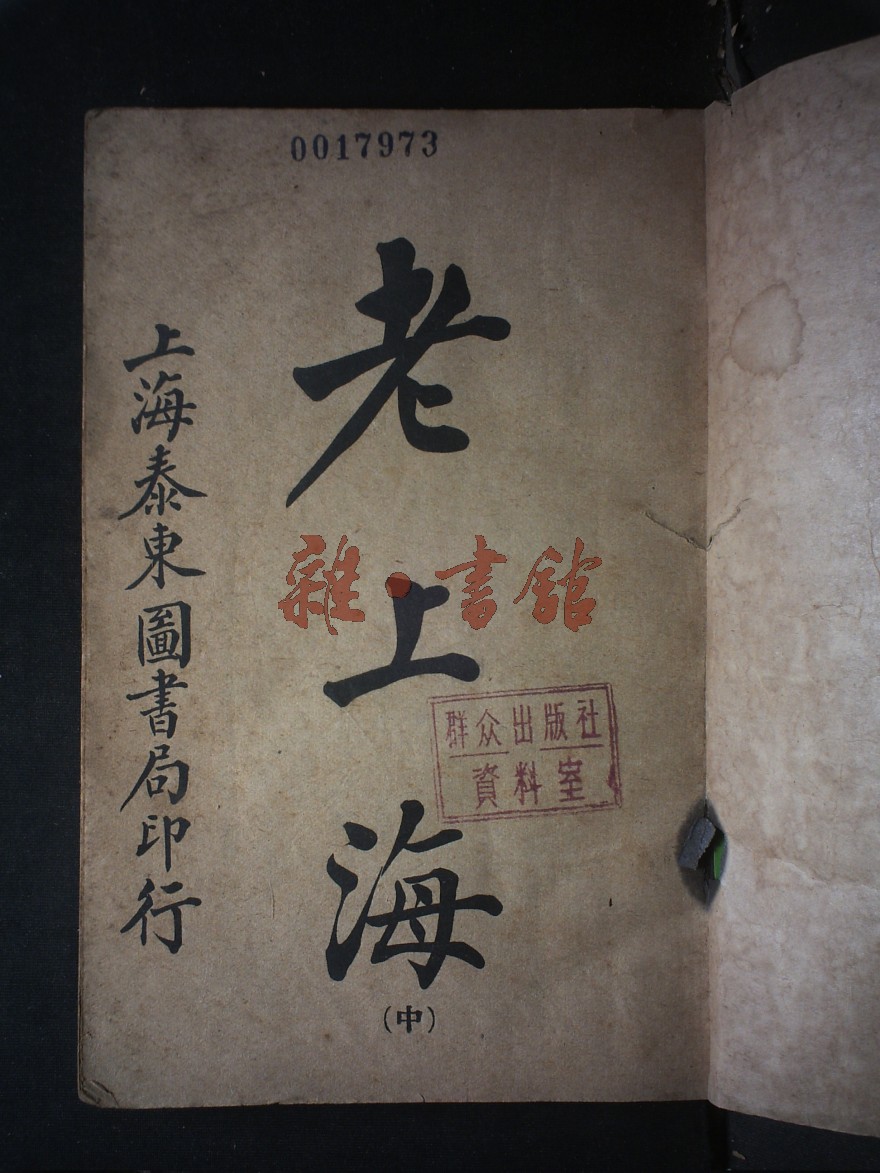 0017973
老上海
(中)
上海泰東圖書局印行
雜·書館
群众出版社
資料室